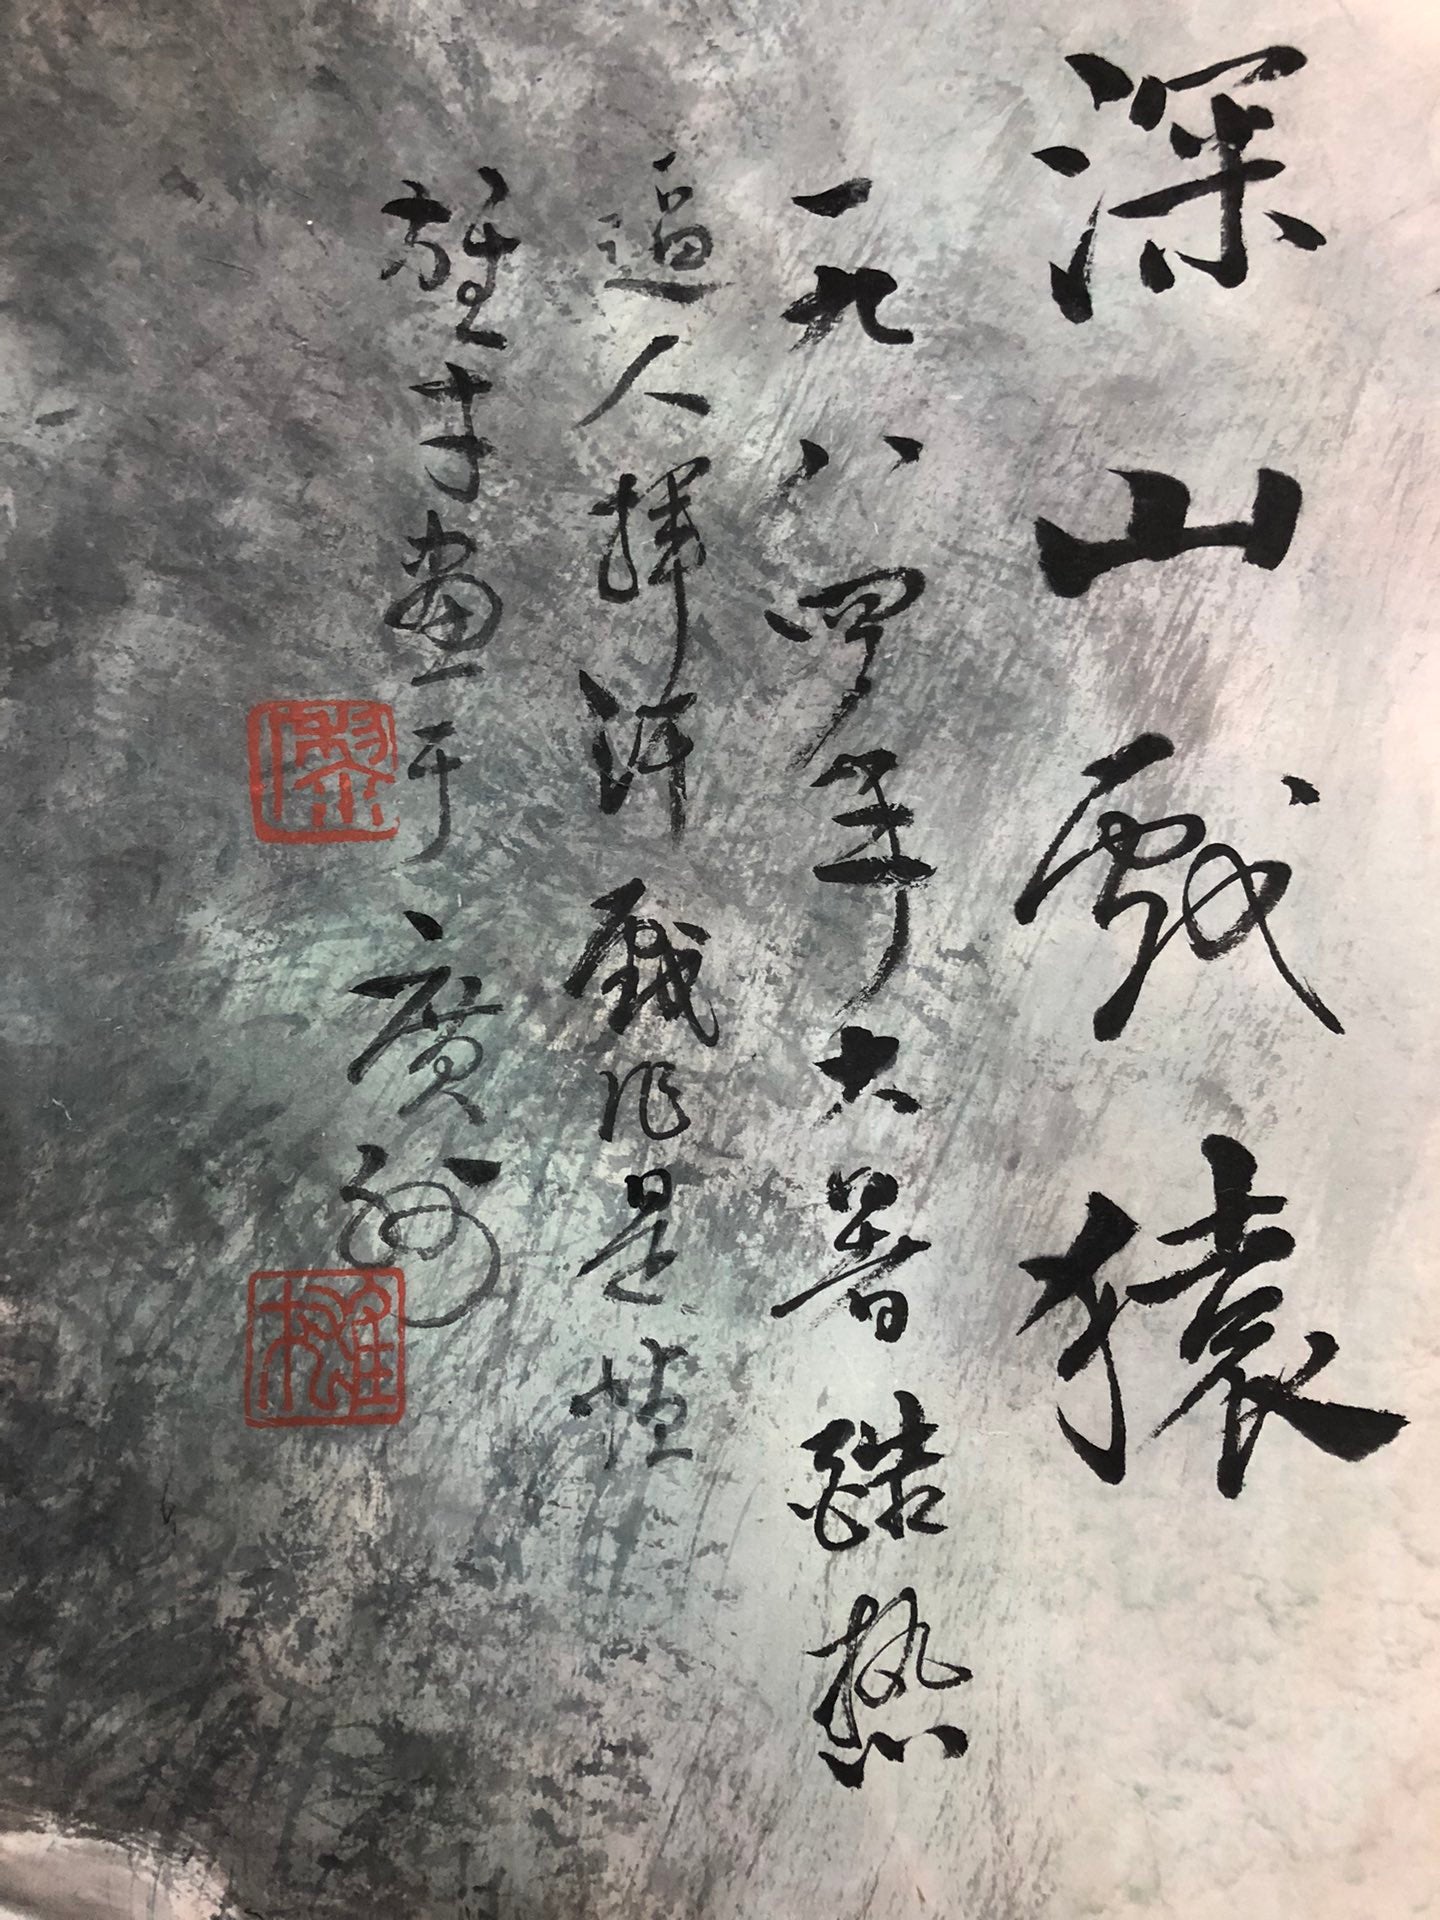 深山戲猿
一九八四年大暑酷熱
逼人揮汗戲作是幀
雄才畫于廣州
黎
雄才